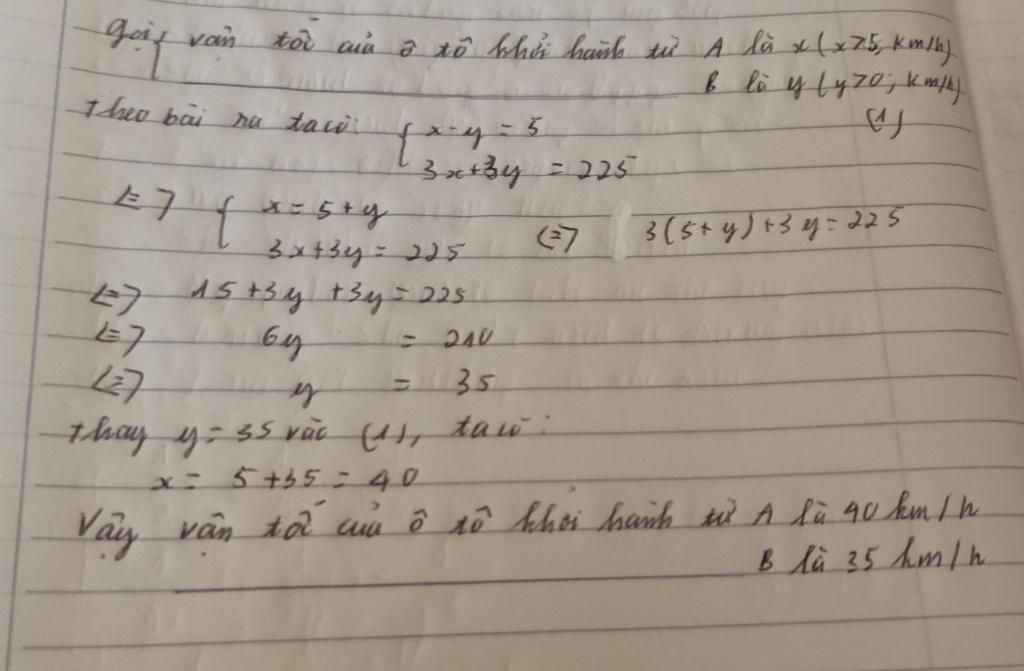 Gọi { vận tốc của ô tô khởi hành từ A là x (x>5, km/h)
B là y (y>0; km/h)
Theo bài ra ta có: { x-y = 5 (1)
3x+3y = 225
<=> { x = 5 + y
3x+3y = 225 <=> 3(5+y)+3y = 225
<=> 15 + 3y + 3y = 225
<=> 6y = 210
<=> y = 35
Thay y = 35 vào (1), ta có:
x = 5 + 35 = 40
Vậy vận tốc của ô tô khởi hành từ A là 40 km/h
B là 35 km/h